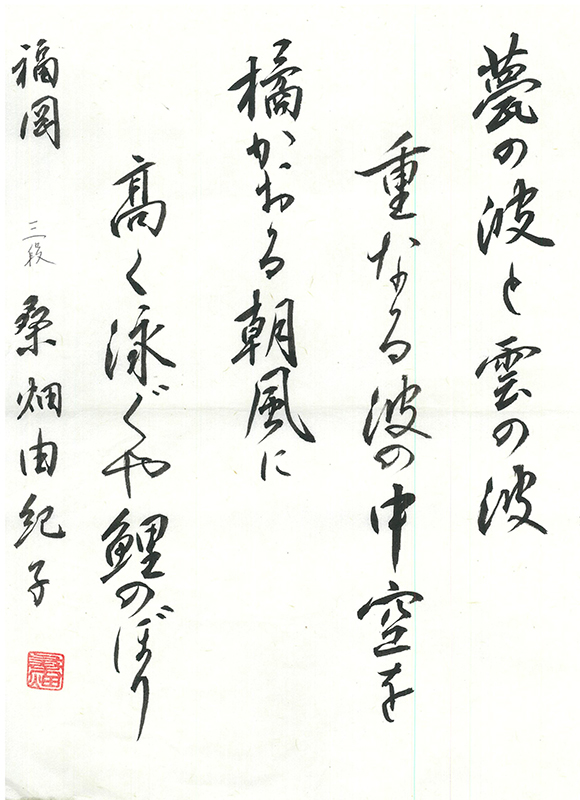 甍の波と雲の波
重なる波の中空を
橘かおる朝風に
高く泳ぐや鯉のぼり
福岡 三段 桑畑由紀子